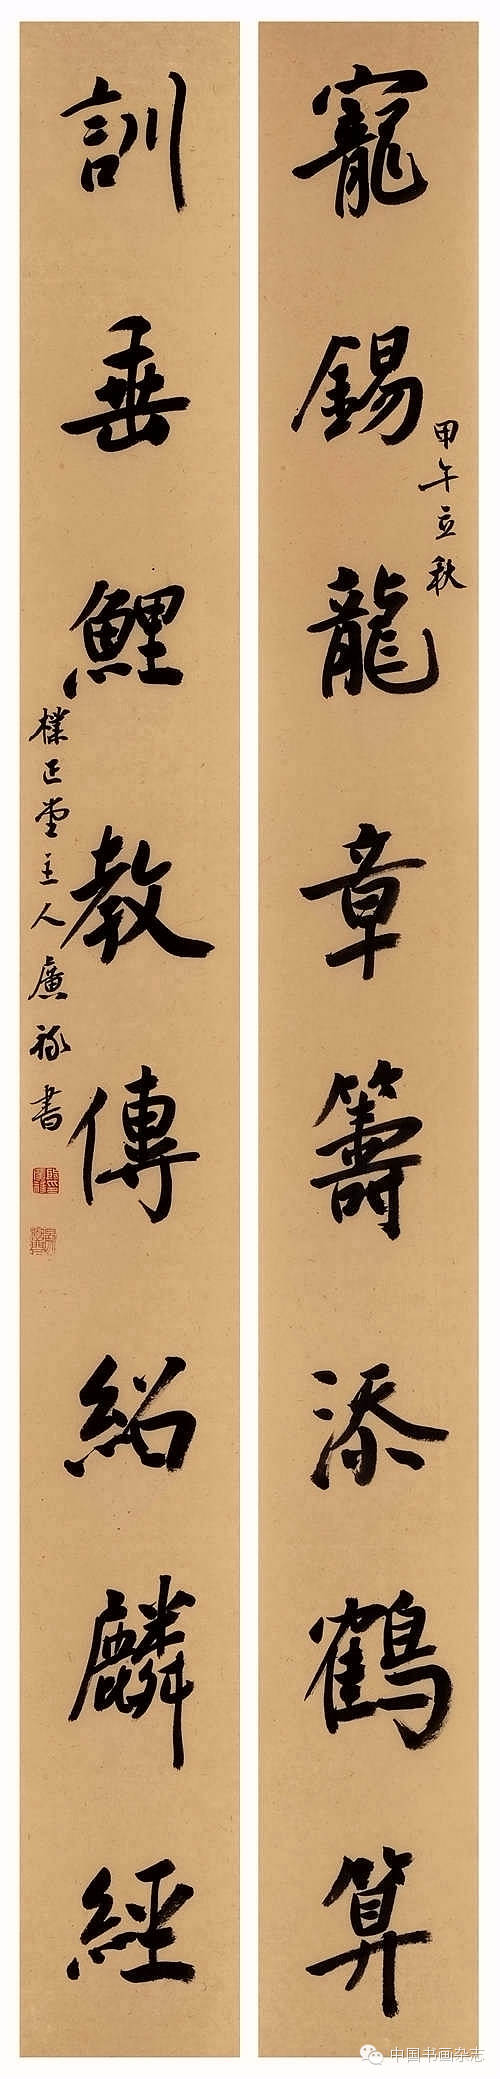 寵錫龍章籌添鶴算
甲午立秋
訓垂鯉教傳紹麟經
樸正堂主人廣祿書
中国书画杂志